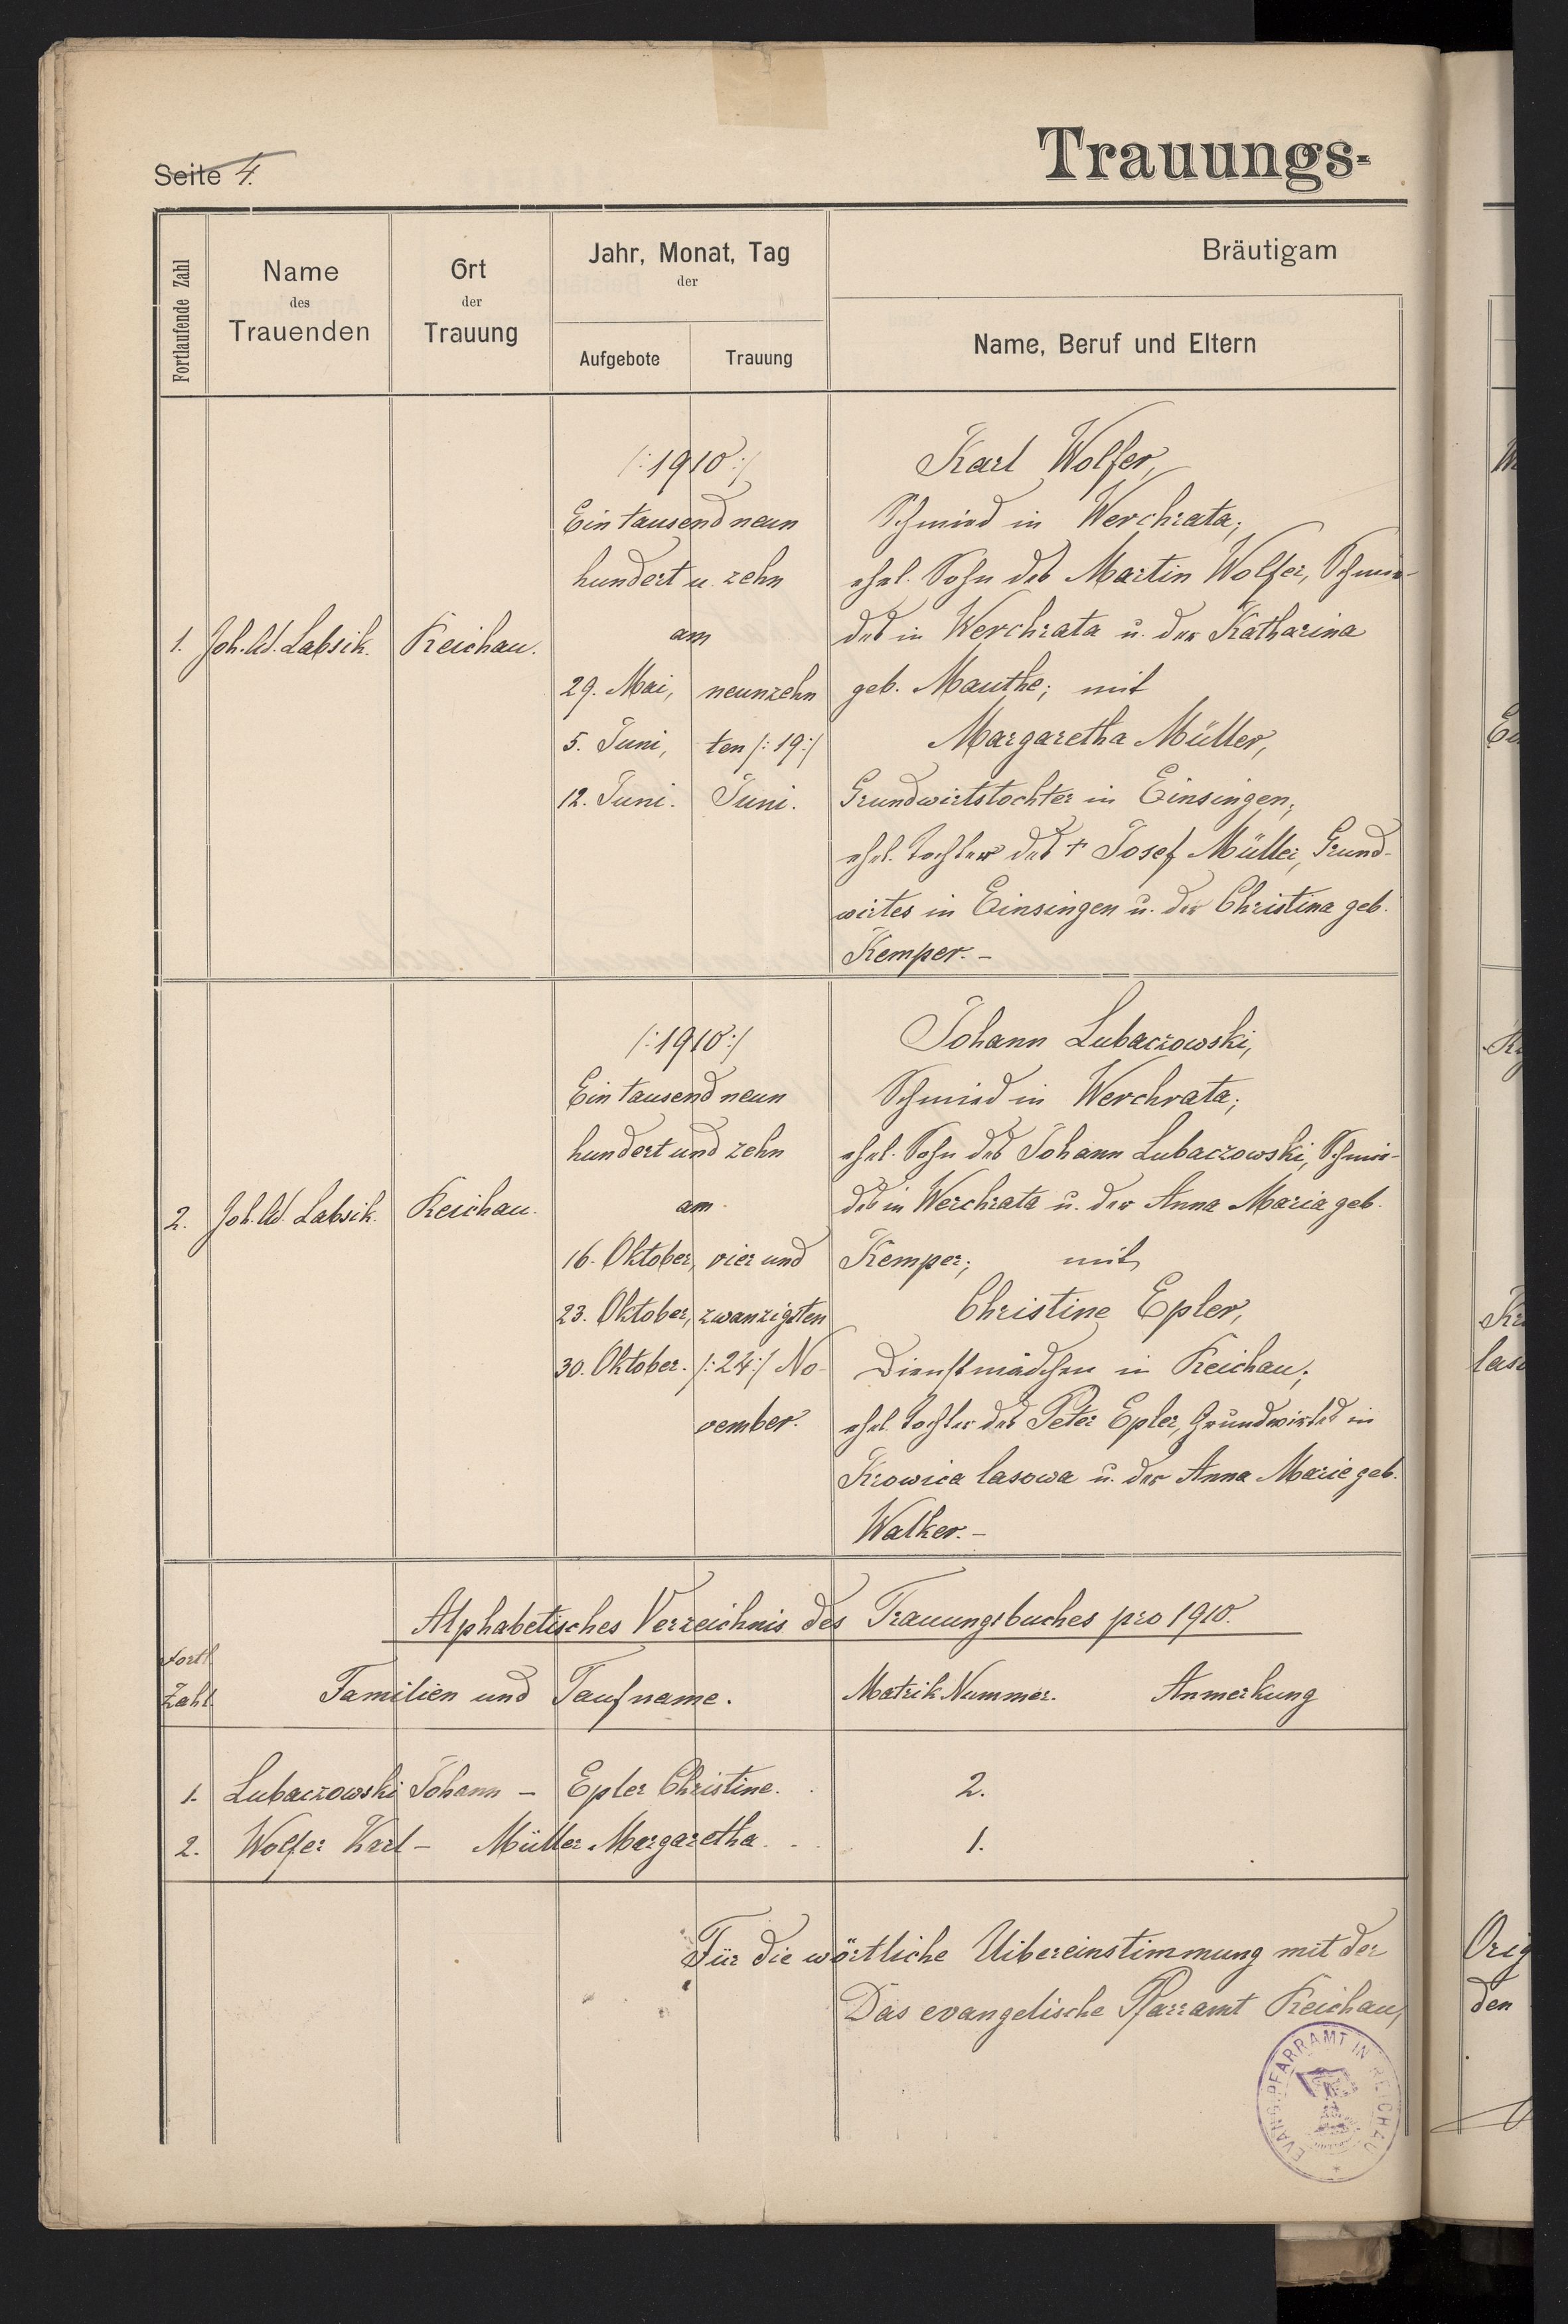 Seite 4.
Trauungs-
Fortlaufende Zahl
Name
des
Trauenden
Ort
der
Trauung
Jahr, Monat, Tag
der
Aufgebote
Trauung
Bräutigam
Name, Beruf und Eltern
1.
Joh. Ad. Labsik.
Reichau.
/:1910:/
Ein tausend neun
hundert u. zehn
am
29. Mai,
5. Juni,
12. Juni.
neunzehn
ten /:19:/
Juni.
Karl Wolfer,
Schmied in Werchrata;
ehel. Sohn des Martin Wolfer, Schmie-
des in Werchrata u. der Katharina
geb. Mauthe; mit
Margaretha Müller,
Grundwirtstochter in Einsingen;
ehel. Tochter des † Josef Müller, Grund-
wirtes in Einsingen u. der Christina geb.
Kemper. –
2.
Joh. Ad. Labsik.
Reichau.
/:1910:/
Ein tausend neun
hundert und zehn
am
16. Oktober,
23. Oktober,
30. Oktober.
vier und
zwanzigsten
/:24:/ No-
vember.
Johann Lubaczowski,
Schmied in Werchrata;
ehel. Sohn des Johann Lubaczowski, Schmie-
des in Werchrata u. der Anna Maria geb.
Kemper; mit
Christine Epler,
Dienstmädchen in Reichau;
ehel. Tochter des Peter Epler, Grundwirtes in
Krowica lasowa u. der Anna Marie geb.
Walker. –
Alphabetisches Verzeichnis des Trauungsbuches pro 1910.
Fortl.
Zahl
Familien und Taufname.
Matrik Nummer.
Anmerkung
1. Lubaczowski Johann – Epler Christine. 2.
2. Wolfer Karl – Müller Margaretha. 1.
Für die wörtliche Uibereinstimmung mit der
Das evangelische Pfarramt Reichau,
EVANG. PFARRAMT IN REICHAU
Orig
den